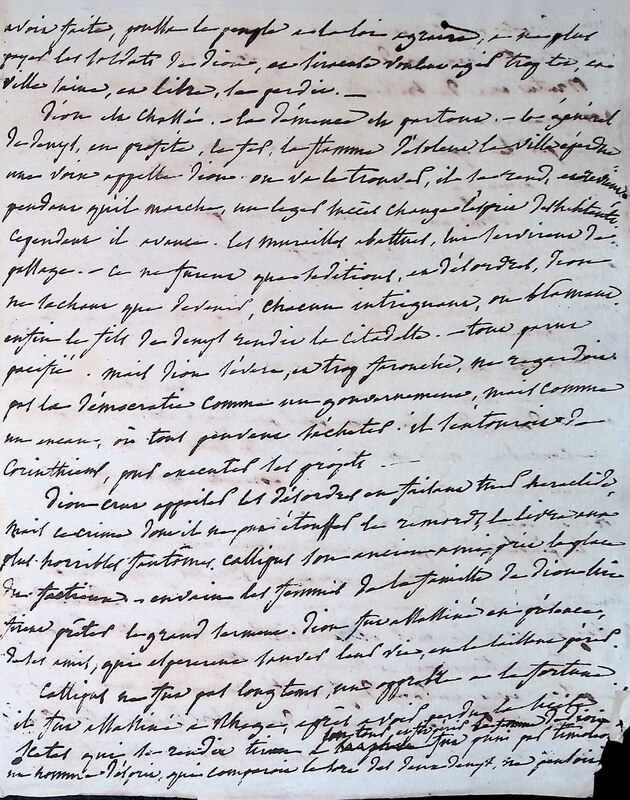 avoir faite, pousse le peuple a la loi agraire, a ne plus
payer les soldats de dion, et heraclide voulant agir trop tot, en
ville saine, en libre, la perdit. —
Dion est chassé. — la démence est partout. — le général
de denys, en profite, le fer, la flamme désolent la ville éperdue
une voix appelle dion. on va le trouver, il se rend,
pendant qu'il marche, un leger succès change l'esprit des habitants
cependant il avance. les murailles abattues, lui servirent de
passage. — ce ne furent que seditions, en désordres, dion
ne sachant que devenir, chacun intriguant, ou blamant
enfin le fils de denys rendit la citadelle. — tout parut
pacifié. mais dion sévère, et trop farouche, ne regardoit
pas la démocratie comme un gouvernement, mais comme
un encan, où tout peuvent s'acheter. il s'entoura de
Corinthiens, pour executer ses projets —
Dion crut appaiser les désordres en faisant tuer heraclide
mais ce crime dont il ne put étouffer le remord, le livra aux
plus horribles fantômes. callipus son ancien ami prit la place
du factieux — en vain les femmes de la famille de dion lui
firent prêter le grand serment. dion fut assassiné en présence,
de ses amis, qui espererent sauver leur vie en le laissant périr.
Callipus ne fut pas longtems, un opprobre a la fortune
il fut assassiné a Rhege, après avoir perdu la Sicile
Icetas qui se rendit tiran a
un homme d'esprit, qui comparoit le sort des deux denys, ne pouvoit